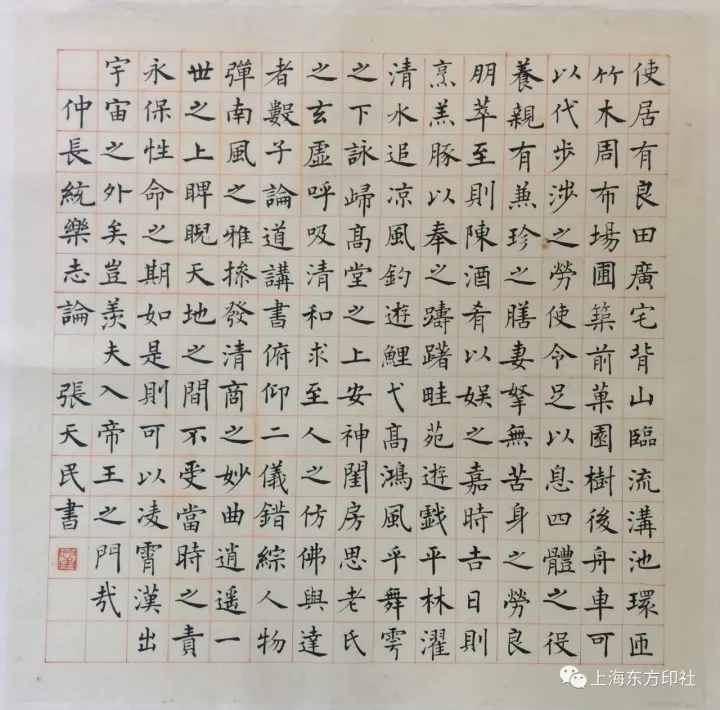 使居有良田廣宅背山臨流溝池環匝
竹木周布場圃築前菓園樹後舟車可
以代步涉之勞使令足以息四體之役
養親有兼珍之膳妻孥無苦身之勞良
朋萃至則陳酒肴以娛之嘉時吉日則
烹羔豚以奉之躊躇畦苑遊戲平林濯
清水追凉風釣遊鯉弋髙鴻風乎舞雩
之下詠歸髙堂之上安神閨房思老氏
之玄虛呼吸清和求至人之仿佛與達
者數子論道講書俯仰二儀錯綜人物
彈南風之雅操發清商之妙曲逍遥一
世之上睥睨天地之間不受當時之責
永保性命之期如是則可以凌霄漢出
宇宙之外矣豈羨夫入帝王之門哉
仲長統樂志論 張天民書
上海东方印社